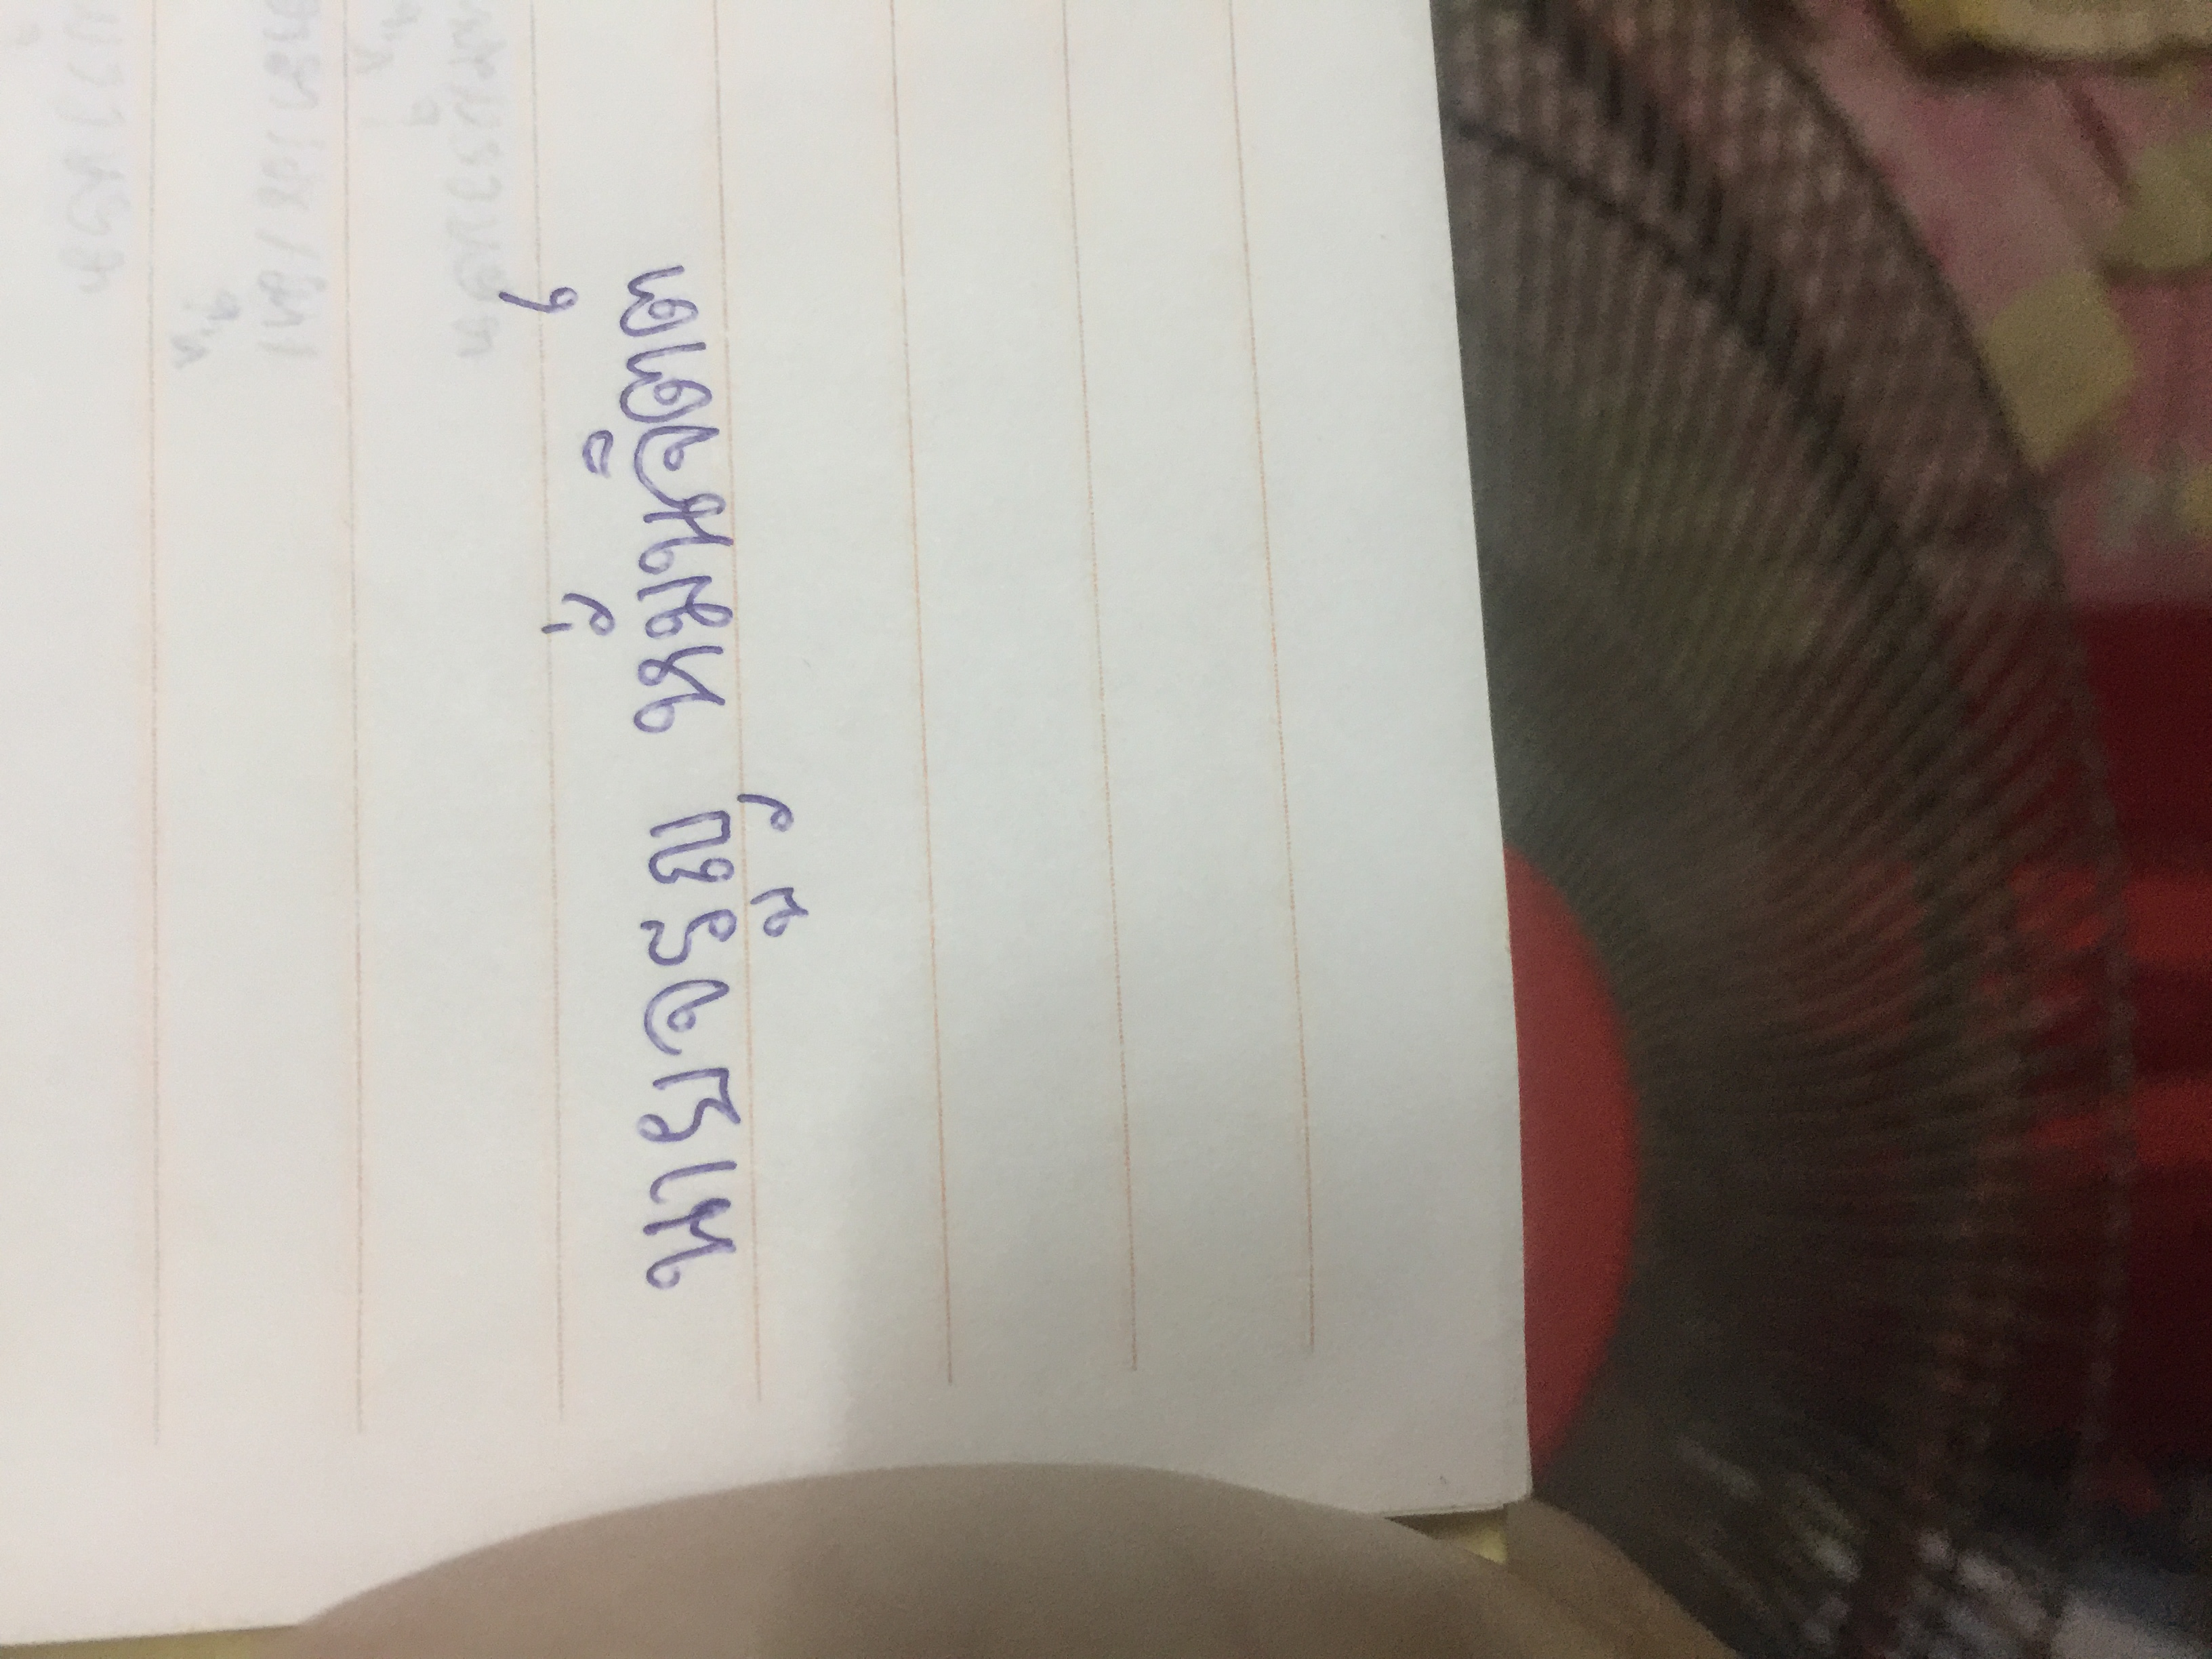 นายจรูญ หมั่นจิตต์